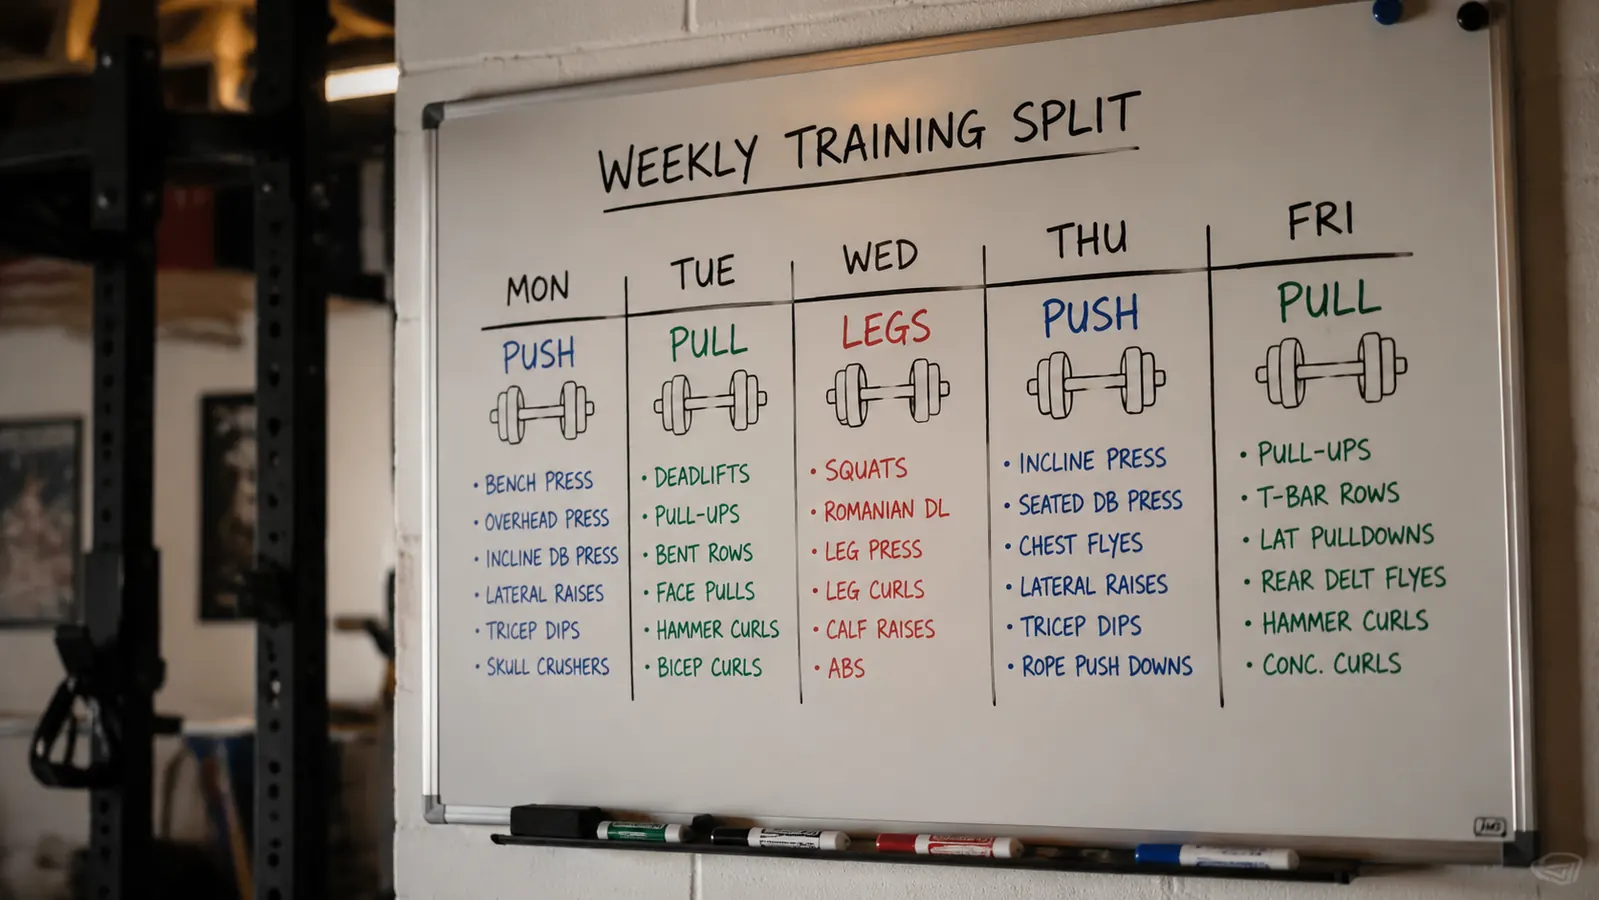 WEEKLY TRAINING SPLIT
MON
PUSH
• BENCH PRESS
• OVERHEAD PRESS
• INCLINE DB PRESS
• LATERAL RAISES
• TRICEP DIPS
• SKULL CRUSHERS
TUE
PULL
• DEADLIFTS
• PULL-UPS
• BENT ROWS
• FACE PULLS
• HAMMER CURLS
• BICEP CURLS
WED
LEGS
• SQUATS
• ROMANIAN DL
• LEG PRESS
• LEG CURLS
• CALF RAISES
• ABS
THU
PUSH
• INCLINE PRESS
• SEATED DB PRESS
• CHEST FLYES
• LATERAL RAISES
• TRICEP DIPS
• ROPE PUSH DOWNS
FRI
PULL
• PULL-UPS
• T-BAR ROWS
• LAT PULLDOWNS
• REAR DELT FLYES
• HAMMER CURLS
• CONC. CURLS